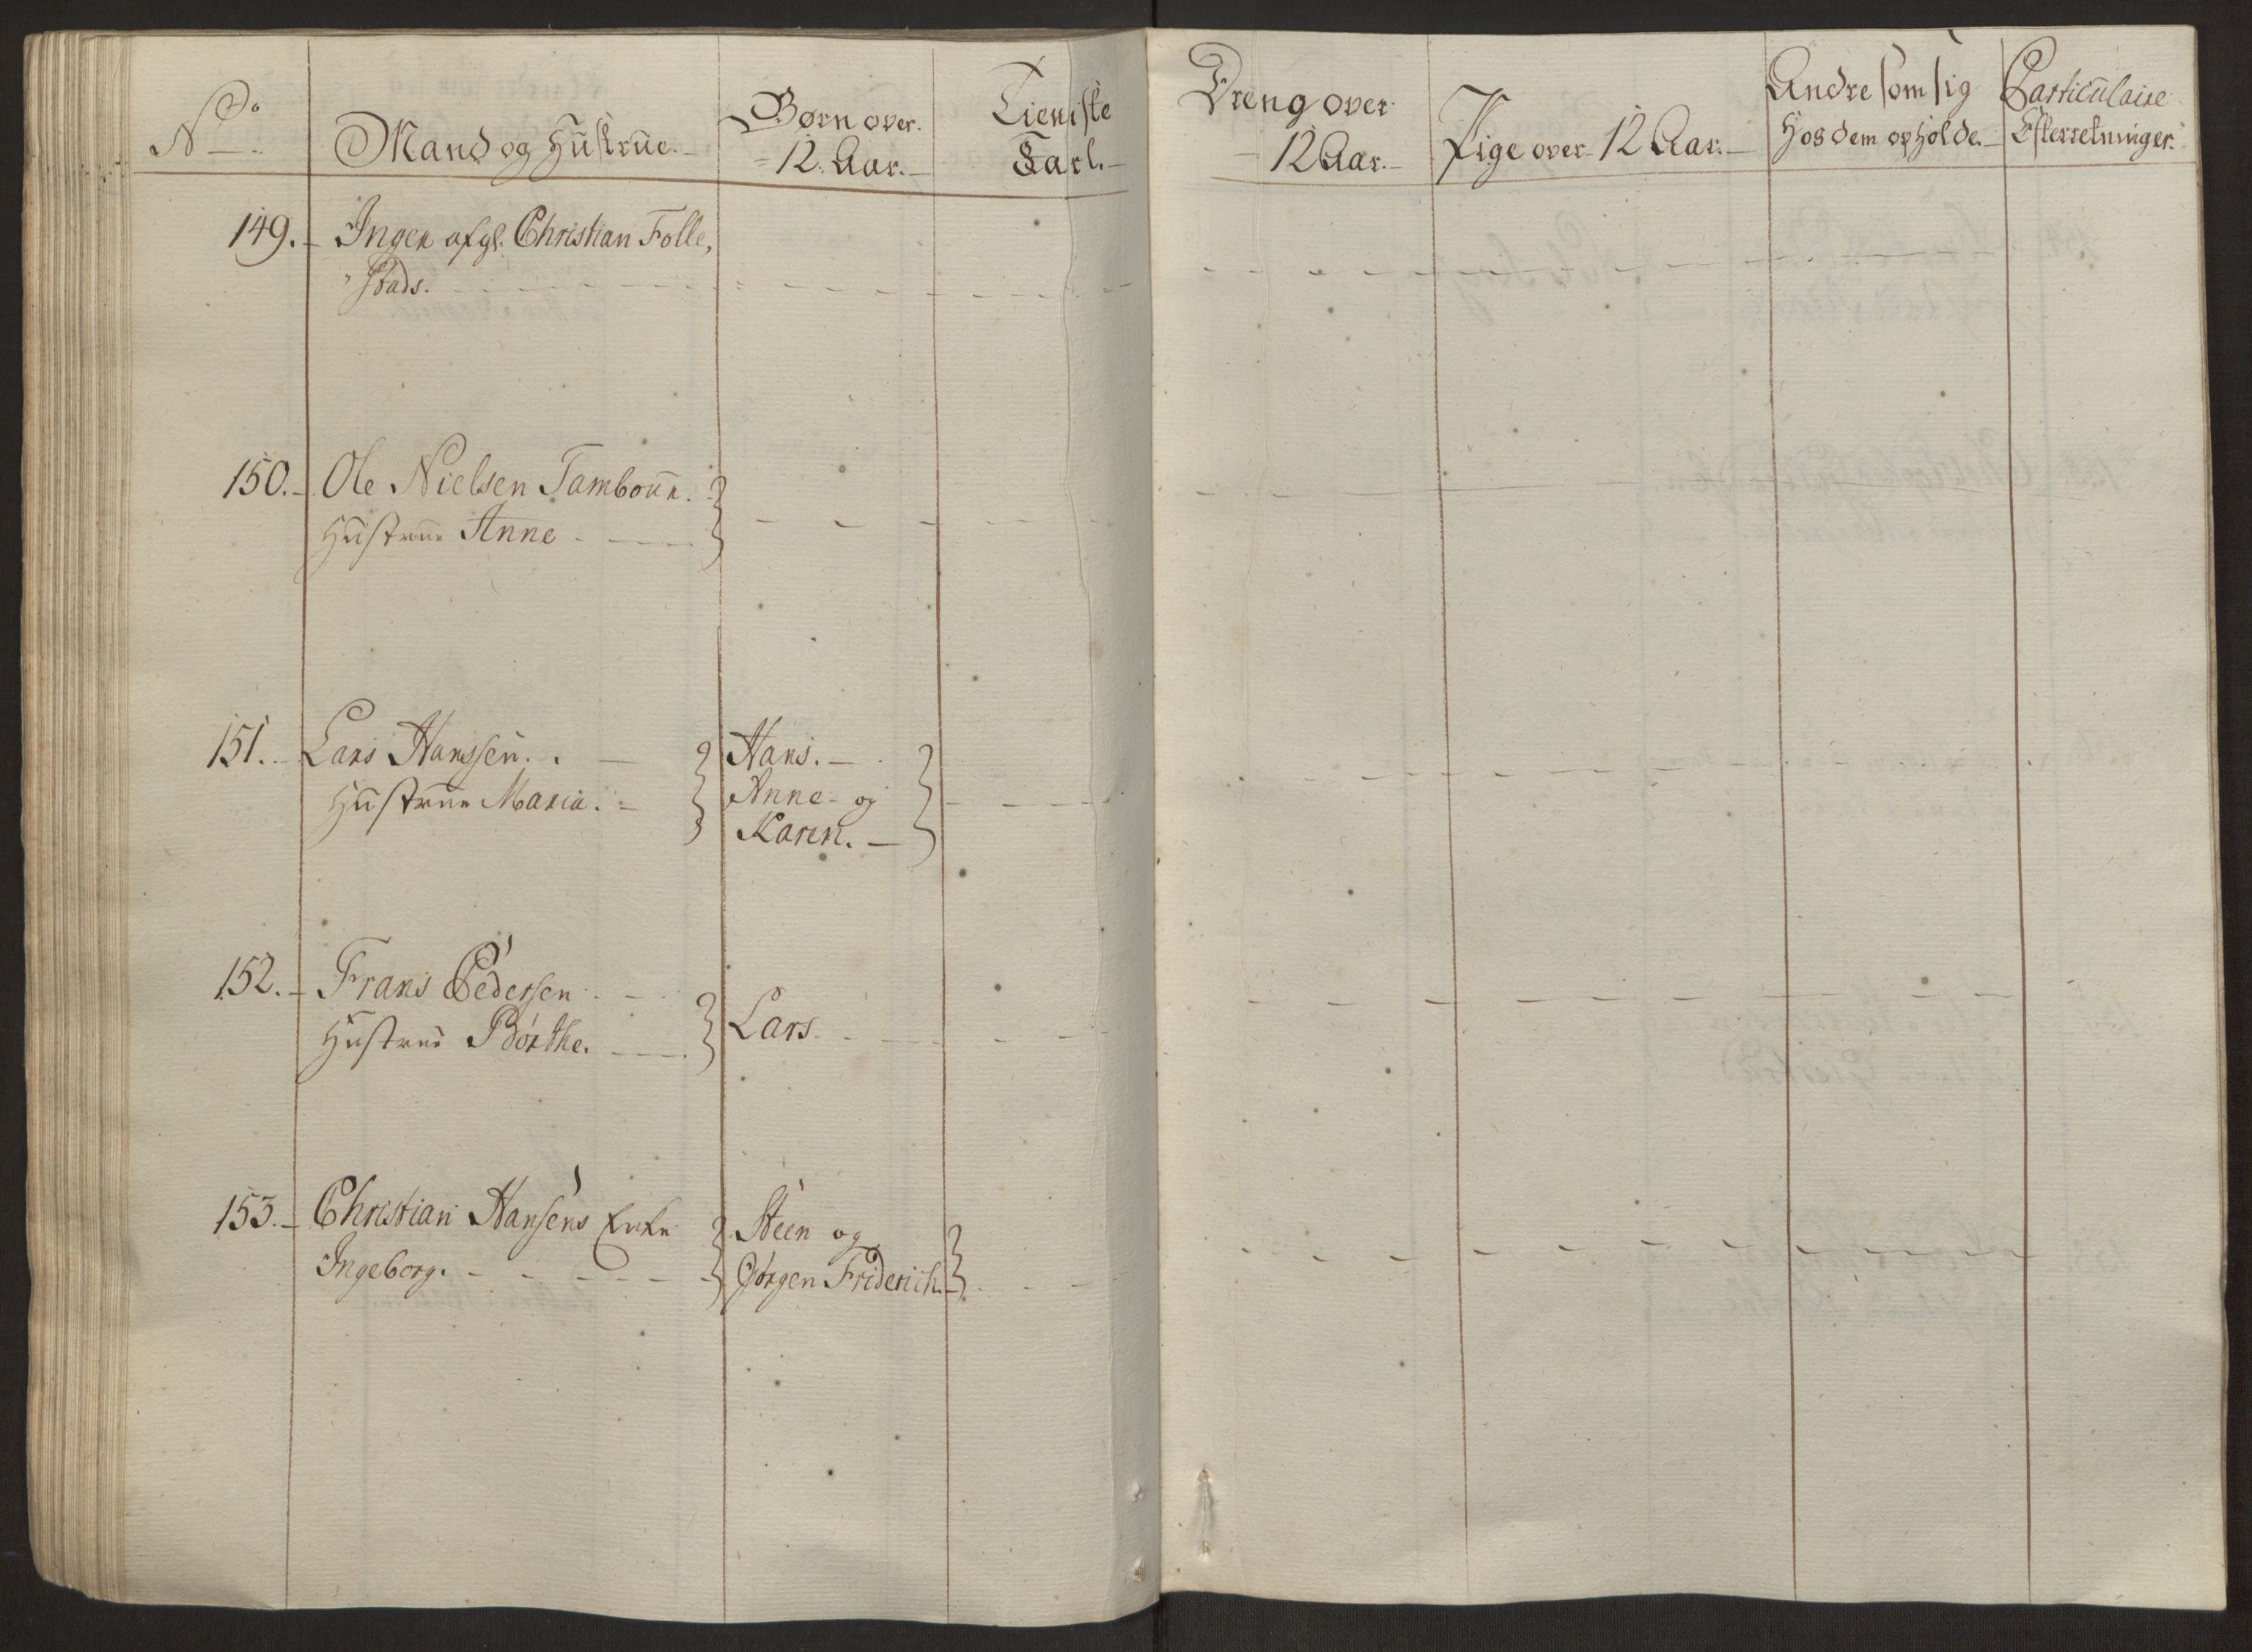 No
Mand og Hustrue.
Børn over
12. Aar.
Tieniste
Karl.
Dreng over
12 Aar.
Pige over 12 Aar.
Andre som sig
Hos dem opholde.
Particulaire
Efterretninger.
149. Ingen afgl. Christian Folle,
stads.
150. Ole Nielsen Tambour.
Hustrue Anne
151. Lars Hanssen.
Hustrue Maria.
Hans.
Anne og
Karen.
152. Frans Pedersen
Hustrue Børthe.
Lars
153. Christian Hansens Enke
Ingeborg.
Steen og
Jørgen Friderich.